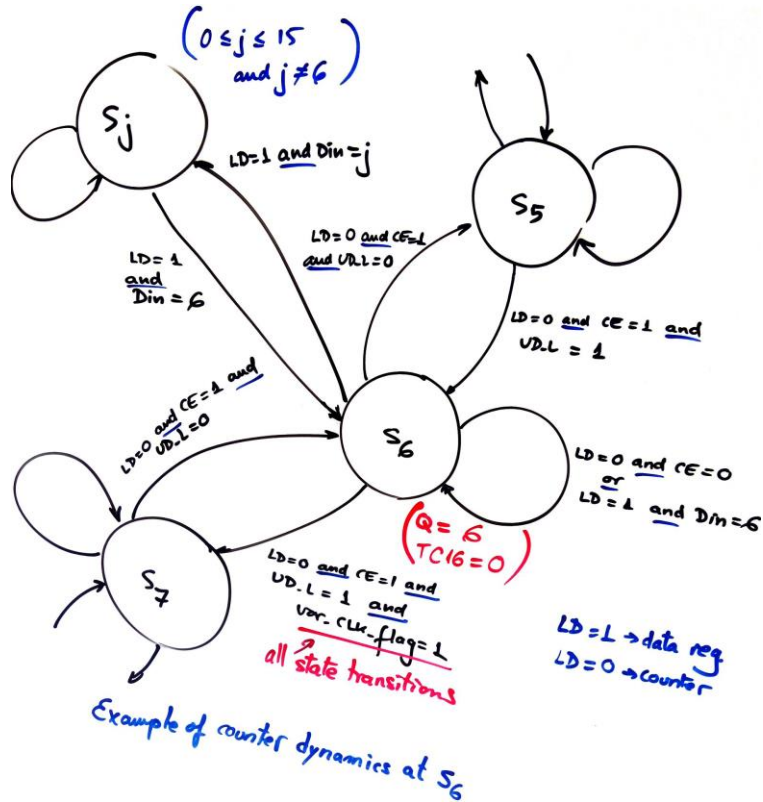 (0 ≤ j ≤ 15
and j ≠ 6)
Sj
LD=1 and Din=j
S5
LD=0 and CE=1
and UD_L=0
LD=1
and
Din=6
LD=0 and CE=1 and
UD_L = 1
LD=0 and CE=1 and
UD_L=0
S6
LD=0 and CE=0
or
LD=1 and Din=6
(Q=6
TC16=0)
S7
LD=0 and CE=1 and
UD_L=1 and
var_CLK_flag=1
all state transitions
LD=1 → data reg
LD=0 → counter
Example of counter dynamics at S6